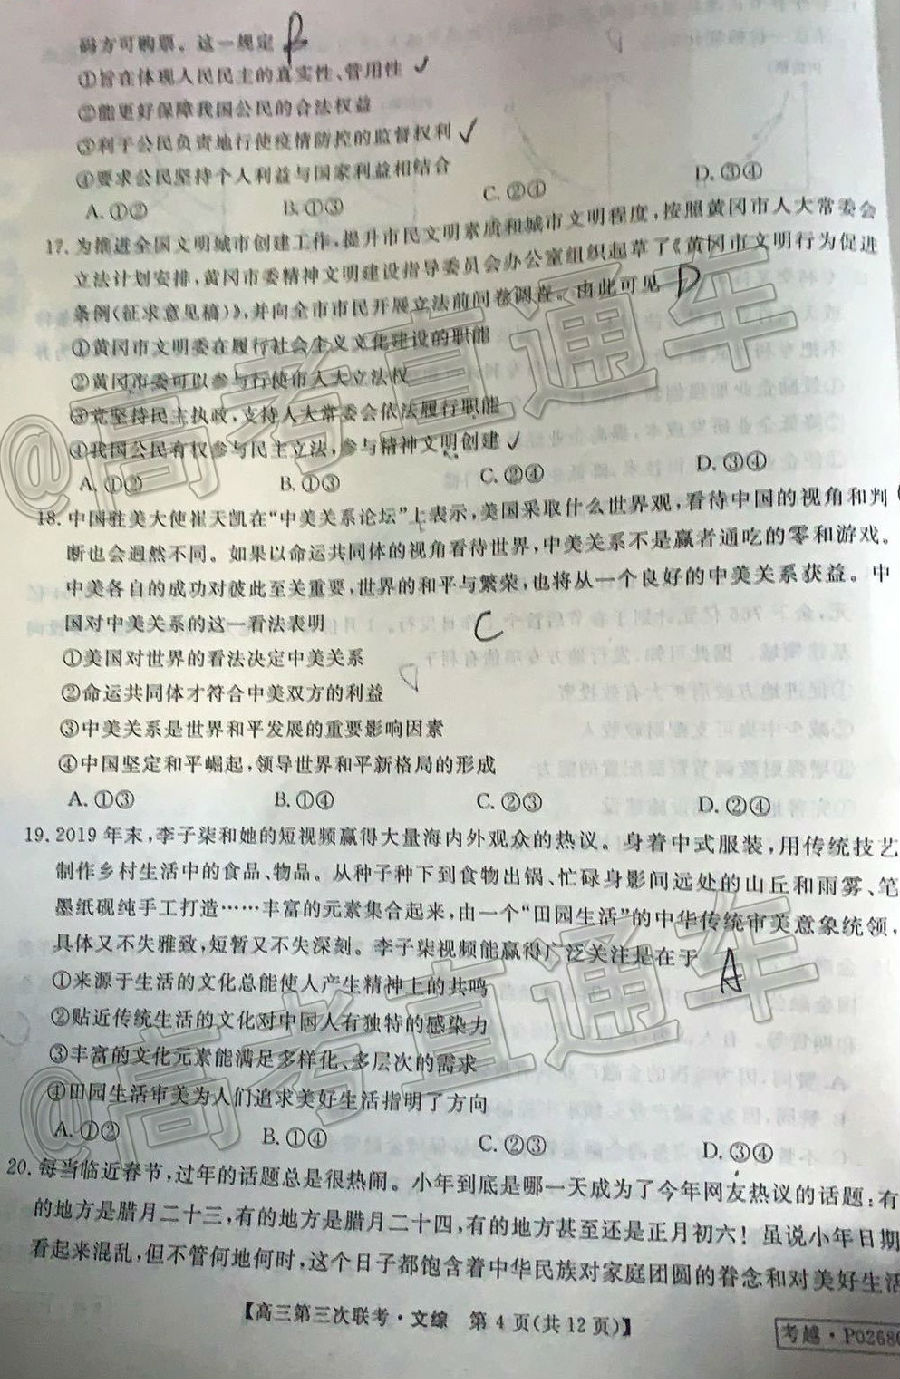 码方可购票。这一规定 B
①旨在体现人民民主的真实性、管用性 ✓
②能更好保障我国公民的合法权益
③利于公民负责地行使疫情防控的监督权利 ✓
④要求公民坚持个人利益与国家利益相结合
A. ①② B. ①③ C. ②④ D. ③④
17. 为推进全国文明城市创建工作，提升市民文明素质和城市文明程度，按照黄冈市人大常委会
立法计划安排，黄冈市委精神文明建设指导委员会办公室组织起草了《黄冈市文明行为促进
条例（征求意见稿）》，并向全市市民开展立法前问卷调查。由此可见 D
①黄冈市文明委在履行社会主义文化建设的职能
②黄冈市委可以参与行使市人大立法权
③党坚持民主执政，支持人大常委会依法履行职能
④我国公民有权参与民主立法，参与精神文明创建 ✓
A. ①② B. ①③ C. ②④ D. ③④
18. 中国驻美大使崔天凯在“中美关系论坛”上表示，美国采取什么世界观，看待中国的视角和判
断也会迥然不同。如果以命运共同体的视角看待世界，中美关系不是赢者通吃的零和游戏。
中美各自的成功对彼此至关重要，世界的和平与繁荣，也将从一个良好的中美关系获益。中
国对中美关系的这一看法表明 C
①美国对世界的看法决定中美关系
②命运共同体才符合中美双方的利益
③中美关系是世界和平发展的重要影响因素
④中国坚定和平崛起，领导世界和平新格局的形成
A. ①③ B. ①④ C. ②③ D. ②④
19. 2019 年末，李子柒和她的短视频赢得大量海内外观众的热议。身着中式服装，用传统技艺
制作乡村生活中的食品、物品。从种子种下到食物出锅、忙碌身影间远处的山丘和雨雾、笔
墨纸砚纯手工打造……丰富的元素集合起来，由一个“田园生活”的中华传统审美意象统领，
具体又不失雅致，短暂又不失深刻。李子柒视频能赢得广泛关注是在于 A
①来源于生活的文化总能使人产生精神上的共鸣
②贴近传统生活的文化对中国人有独特的感染力
③丰富的文化元素能满足多样化、多层次的需求
④田园生活审美为人们追求美好生活指明了方向
A. ①② B. ①④ C. ②③ D. ③④
20. 每当临近春节，过年的话题总是很热闹。小年到底是哪一天成为了今年网友热议的话题：有
的地方是腊月二十三，有的地方是腊月二十四，有的地方甚至还是正月初六！虽说小年日期
看起来混乱，但不管何地何时，这个日子都饱含着中华民族对家庭团圆的眷念和对美好生活
【高三第三次联考·文综 第 4 页（共 12 页）】
考越·P0268
@高考直通车
@高考直通车